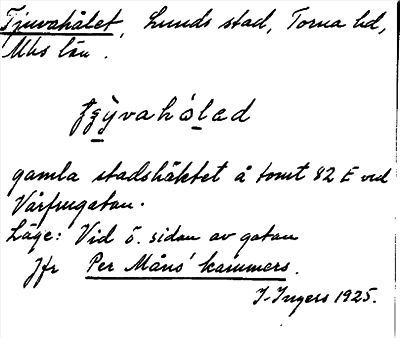 Tjuvahålet, Lunds stad, Torna hd,
Mhs län.
gamla stadshäktet å tomt 82 E vid
Vårfrugatan.
Läge: Vid ö. sidan av gatan
Jfr Per Måns' kammers.
I. Ingers 1925.